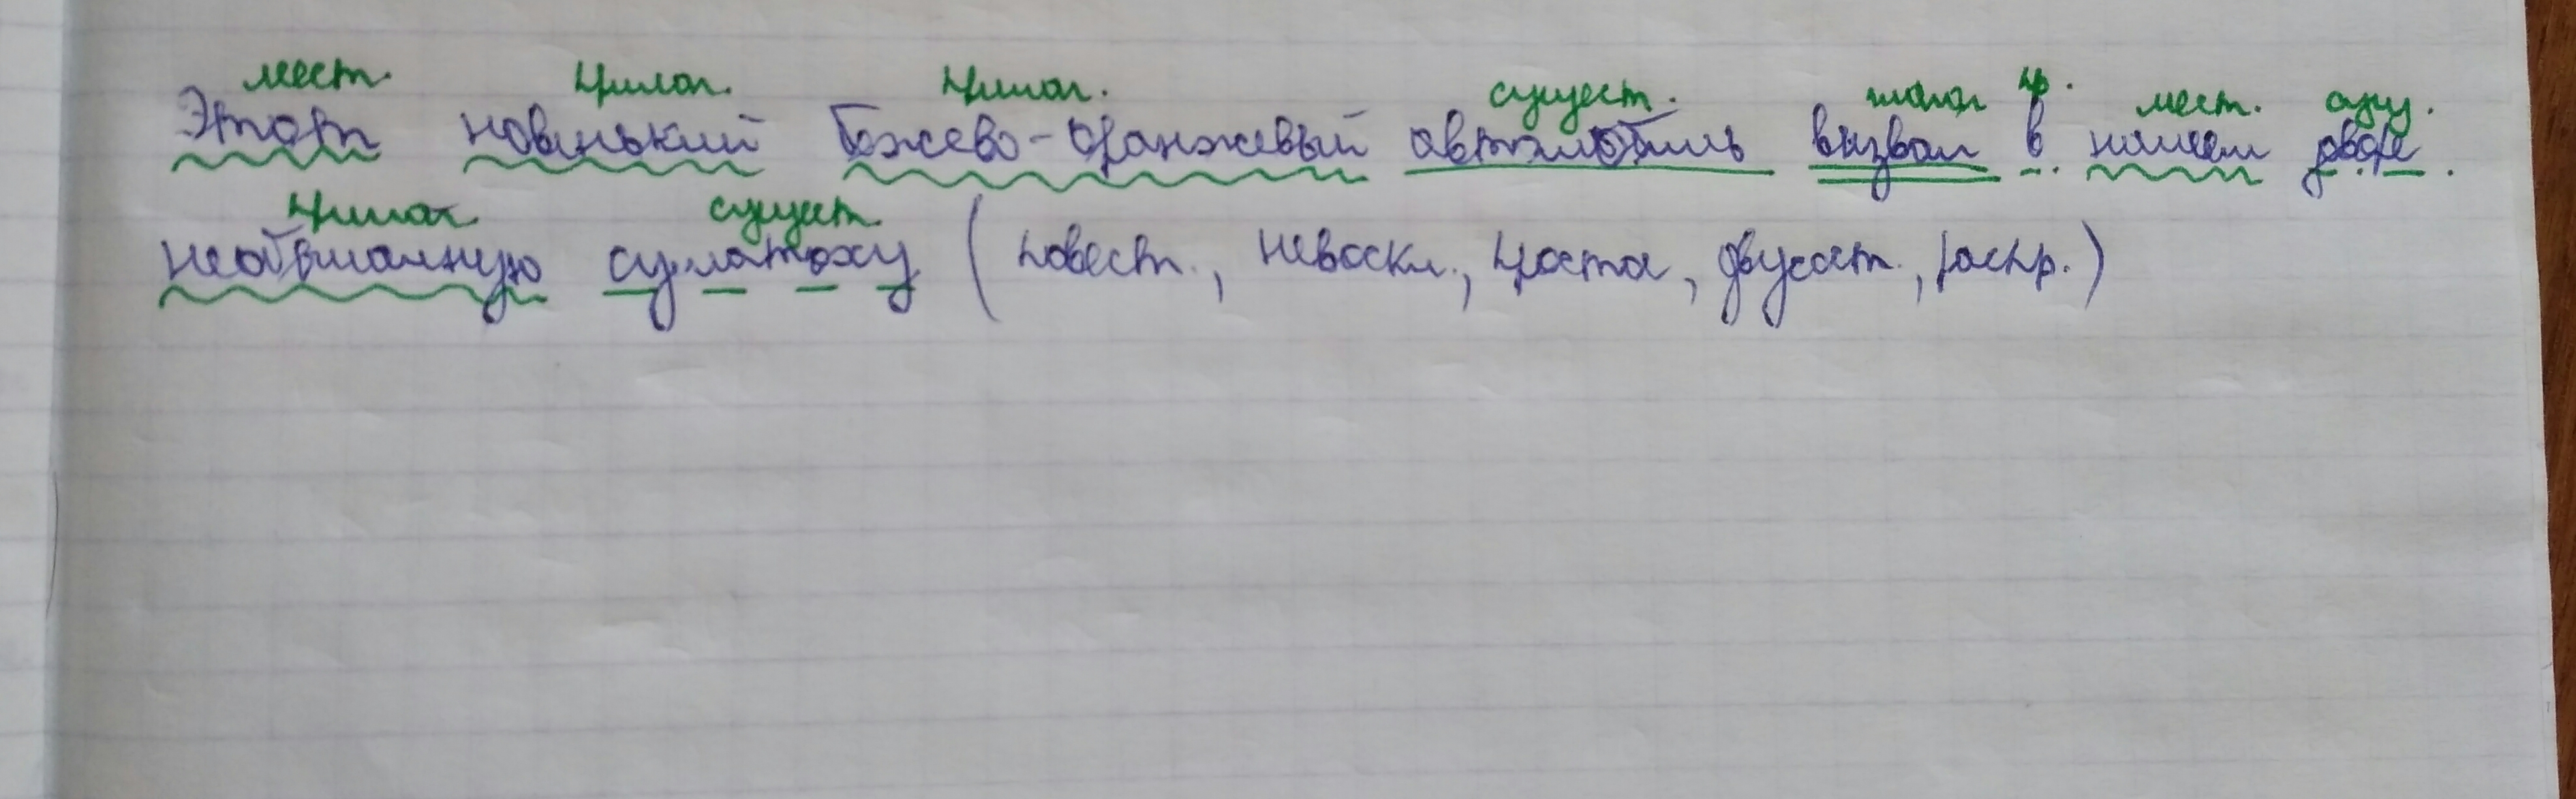 мест. прилаг. прилаг. сущест. глагол пр. мест. сущ.
Этот новинький бежево-оранжевый автомобиль вызвал в нашем дворе
прилаг. сущест.
небывалую суматоху (повест., невоскл., проста, двусост., распр.)